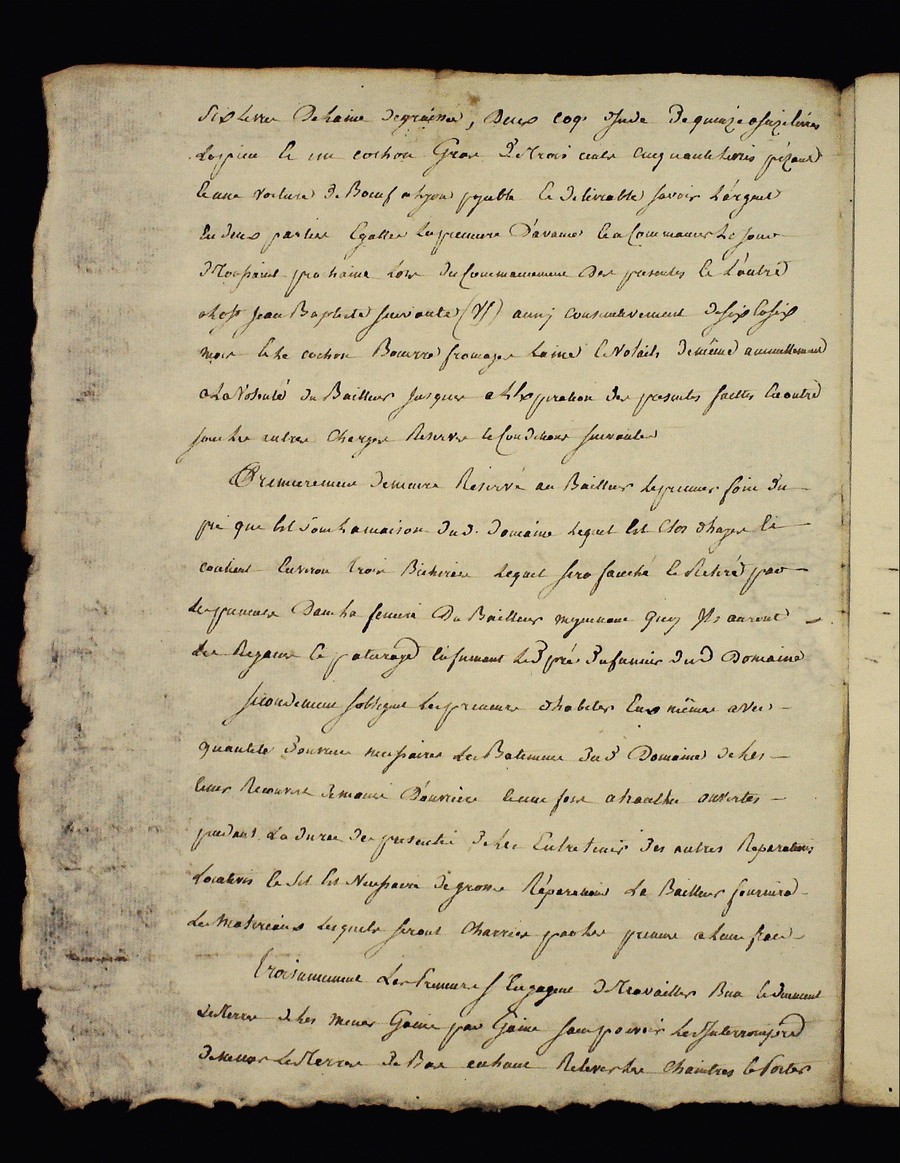 six livres De laine degraissée, Deux coqs dinde de quinze a seize livres
La piece et un cochon Gras De trois cents cinquante livres pezant
et une voiture de Boeuf a Lyon payable et delivrable savoir L'argent
En deux parties Egalles La premiere D'avance et a Commancer Le jour
de Toussaint prochaine Lors du Commancement Des presentes et L'autre
a la st Jean Baptiste suivante ainsy consecutivement de six en six
mois et Le cochon Beurre fromages Laine et Volaile de même annuellement
a La Volonté du Bailleur jusques a L'Expiration des presentes faittes En outre
sous Les autres Charges Reserves et Conditions suivantes
Premierement demeure Reservé au Bailleur Le premier foin du
pré qui Est sous La maison dud. domaine Lequel Est Clos d'hayes et
contient Environ trois Bicherées Lequel sera fauché et Retiré par
Les preneurs Dans La feniere Du Bailleur moyennant quoy ils auront
Les Regains et paturage En fumant Led pré du fumier dud Domaine
secondement s'obligent Les preneurs d'habiter Eux mêmes avec
quantité d'ouvriers necessaires Les Batiments dud Domaine de Les
tenir Recouvert de main D'ouvriere et une fois a tranchée ouverte
pendant La durée des presentes de Les Entretenir des autres Reparations
Locatives et s'il Est Necessaire de grosses Réparations Le Bailleur fournira
Les materiaux Lesquels seront Charriés par Les preneurs a Leurs frais
Troisiemement Les Preneurs s'Engagent de travailler Bien et duement
Les terres de Les mener Gaine par Gaine sans pouvoir Les interrompre
de mener Les terres de Bas en haut Relever Les Chaintres et Portes